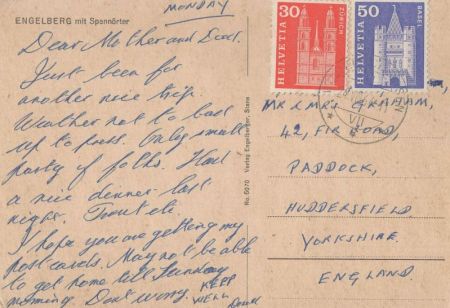 ENGELBERG mit Spannörter
MONDAY
Dear Mother and Dad.
Just been for
another nice trip
Weather not to bad
up to press. Only small
party of folks. Had
a nice dinner last
night. Trout etc.
I hope you are getting my
post cards. May not be able
to get home till Sunday
morning. Dont worry. KEEP
WELL
No. 5070 Verlag Engelberger, Stans
30
HELVETIA
ZÜRICH
50
HELVETIA
BASEL
VII
MR & MRS GRAHAM,
42, FIR ROAD,
PADDOCK,
HUDDERSFIELD
YORKSHIRE.
ENGLAND.